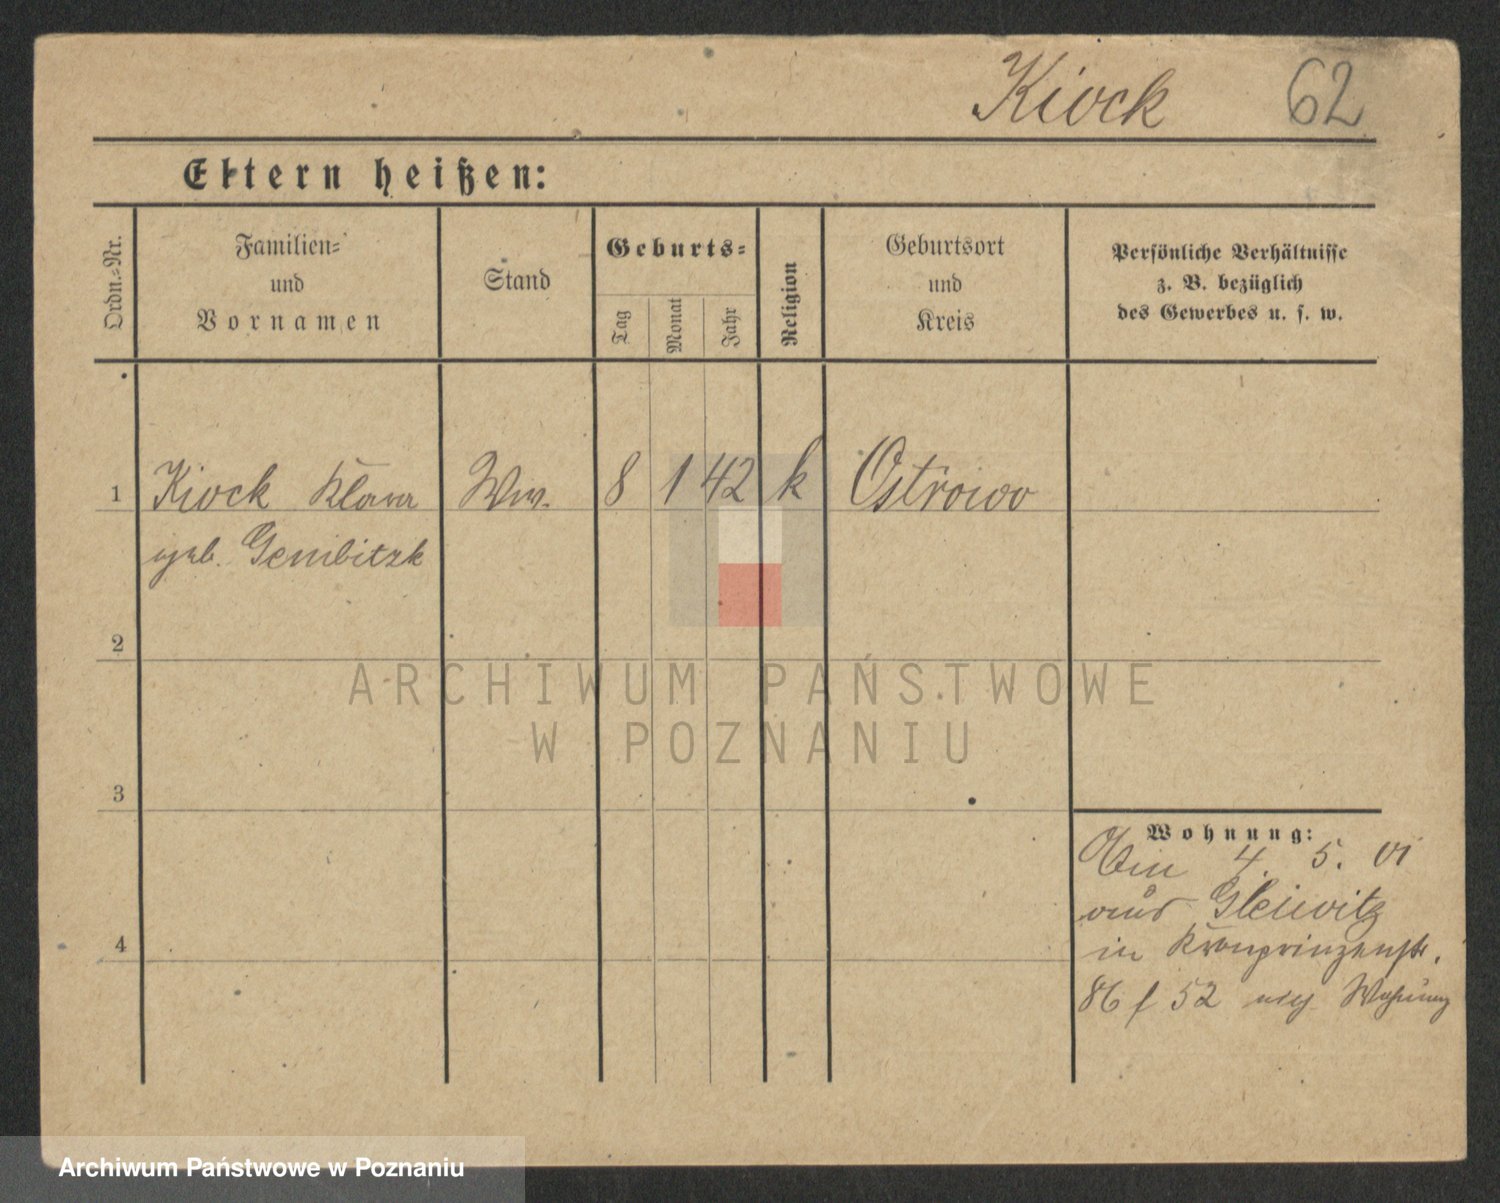 Kiock 62
Eltern heißen:
Ordn.=Nr.
Familien=
und
Vornamen
Stand
Geburts=
Tag
Monat
Jahr
Religion
Geburtsort
und
Kreis
Persönliche Verhältnisse
z. B. bezüglich
des Gewerbes u. s. w.
1 Kiock Klara Ww. 8 1 42 k Ostrowo
geb. Gembitzk
2
ARCHIWUM PAŃSTWOWE
W POZNANIU
3
Wohnung:
4. 5. 01
aus Gleiwitz
in Kronprinzenstr.
4
86 f 52 Wohnung
Archiwum Państwowe w Poznaniu